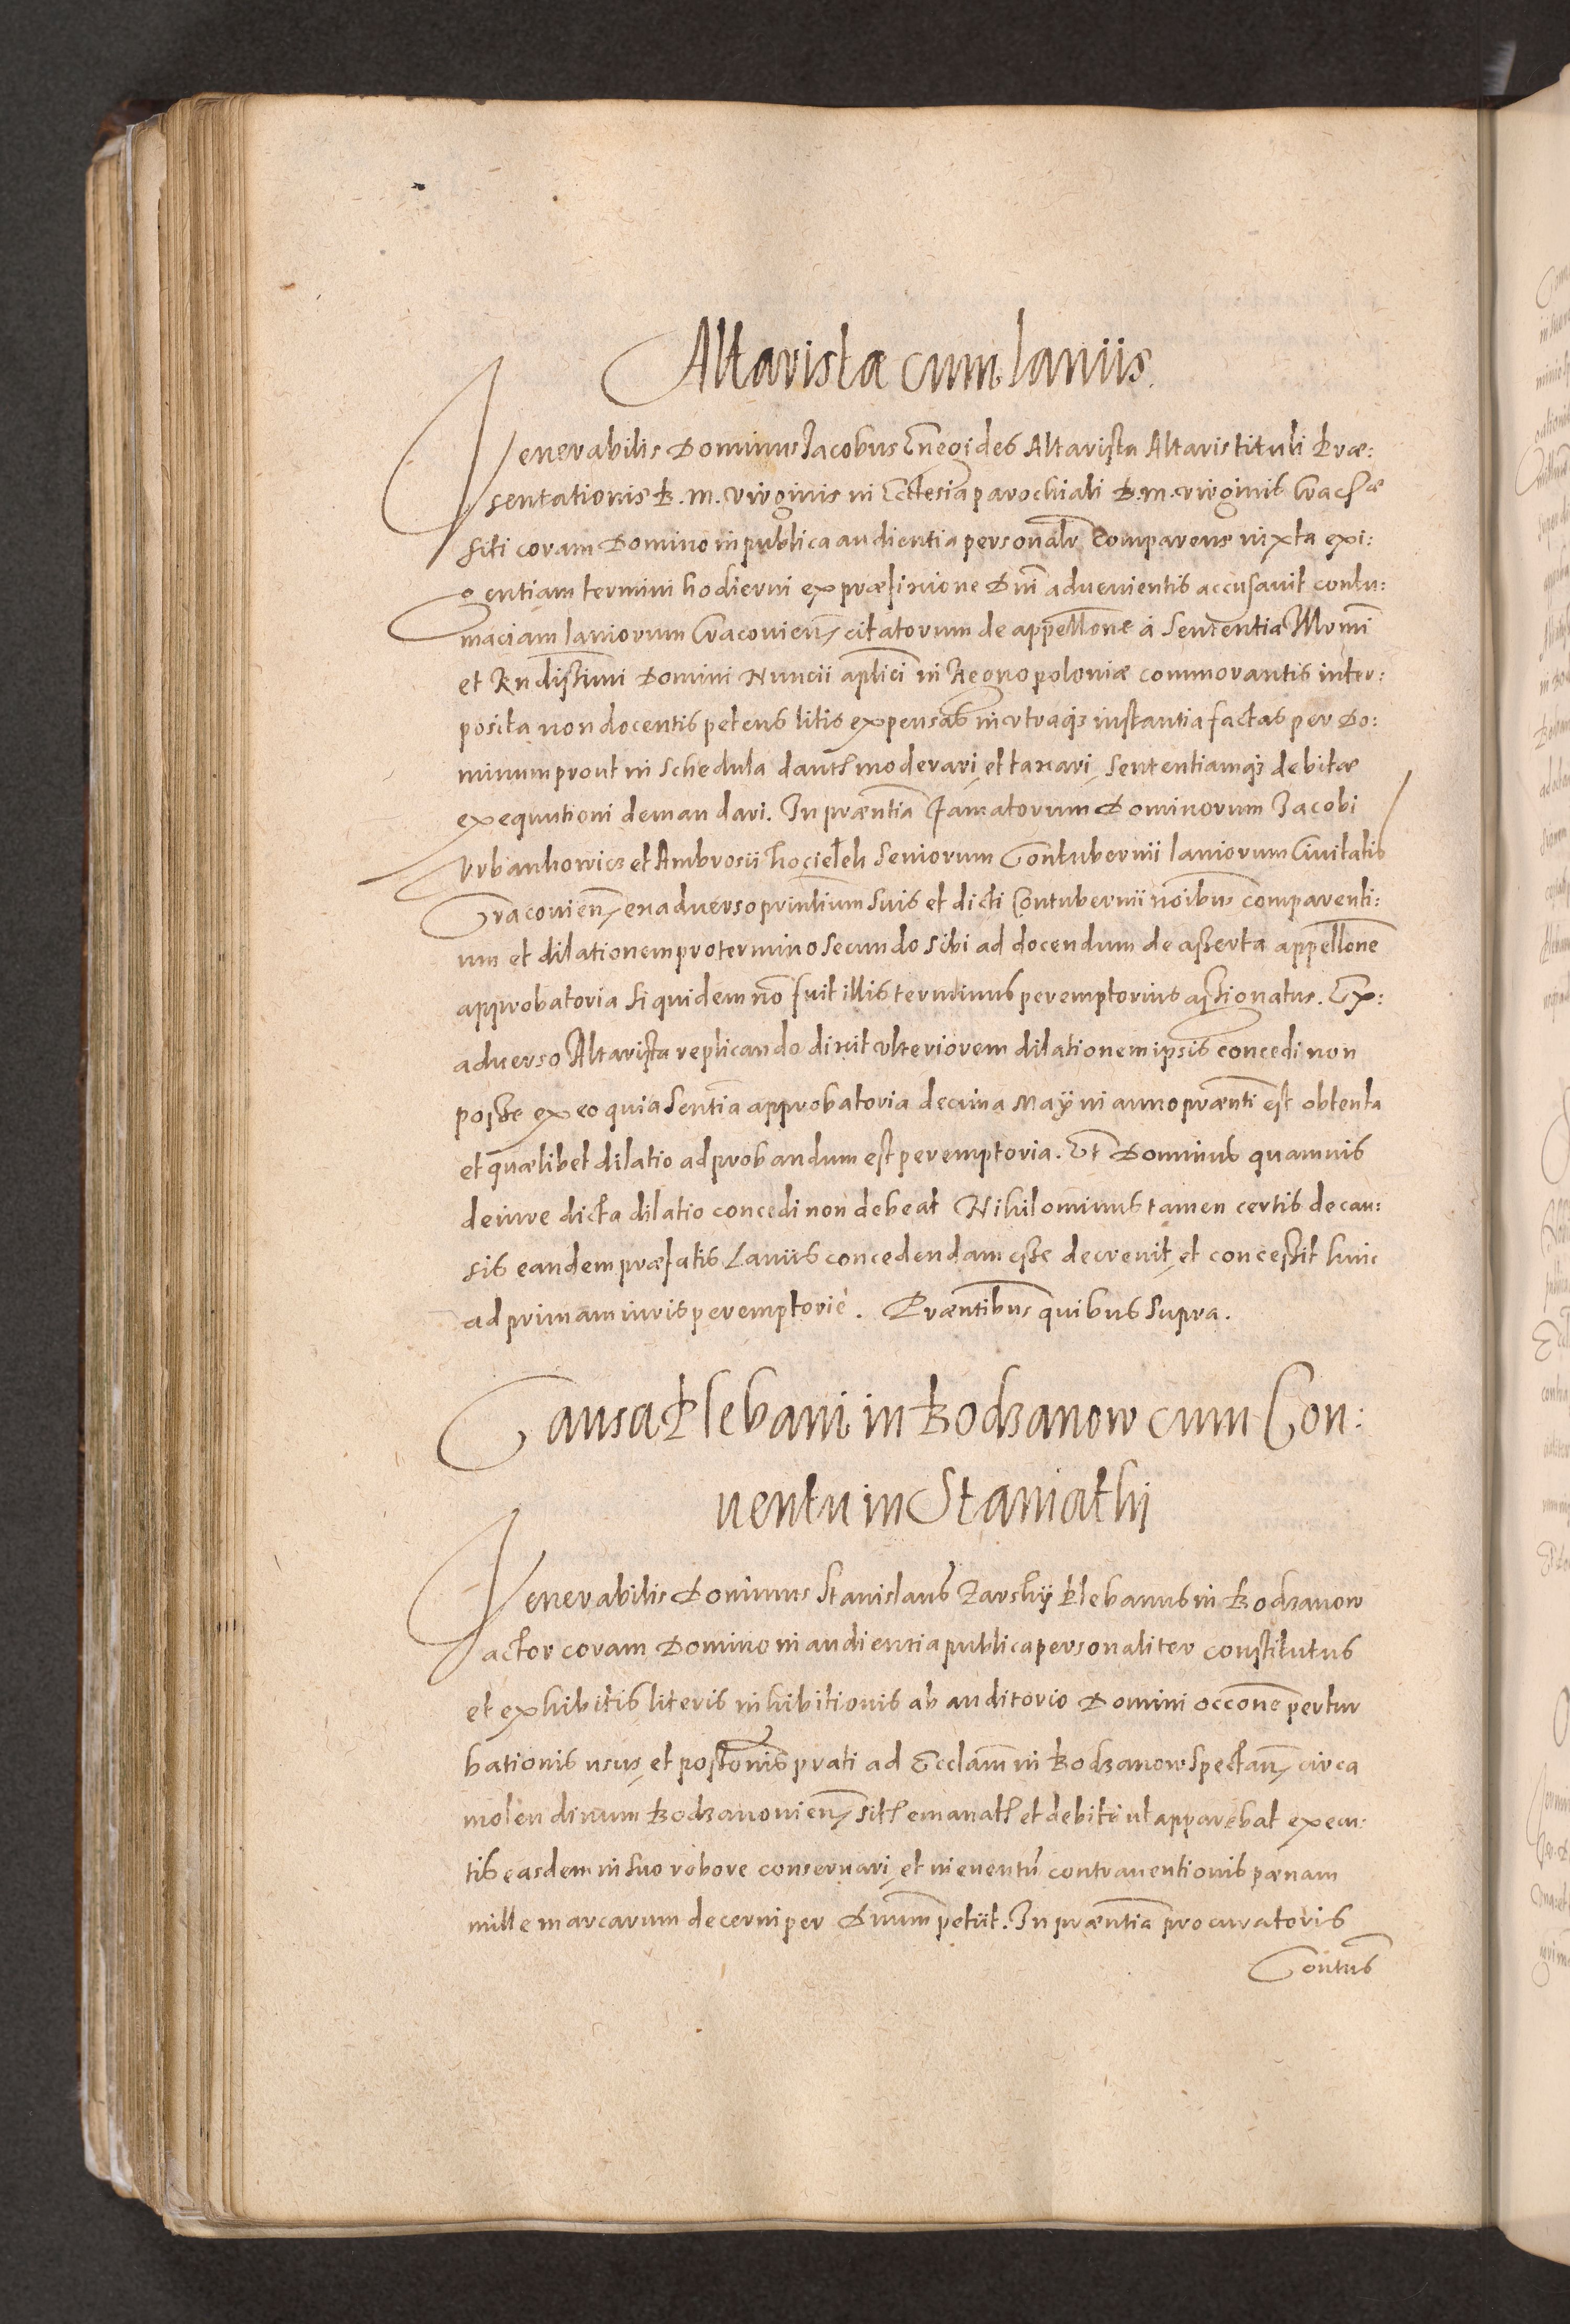 Altarista cum laniis.
Venerabilis Dominus Jacobus Altarista Altaris tituli Præ:
sentationis B. M. Virginis in Ecclesia parochiali B. M. Virginis
siti coram Domino in publica audientia personalr comparens iuxta exi:
gentiam termini hodierni ex præfixione Dni aduenientis accusauit contu:
maciam laniorum Cracouien citatorum de appellone à sententia Illmi
et Rndissimi Domini Nuncii aplici in Regno poloniæ commorantis inter:
posita non docentis petens litis expensas in vtraq; instantia factas per Do:
minum prout in schedula moderari, et taxari, sententiamq; debitæ
exequutioni demandari. In præntia famatorum Dominorum Jacobi
Vrbankowicz et Ambrosii Seniorum Contubernii laniorum Ciuitatis
Cracouien, ex aduerso printium suis et dicti Contubernii noibus comparenti:
um et dilationem pro termino secundo sibi ad docendum de asserta appellone
approbatoria siquidem no fuit illis terminus peremptorius assignatus. Ex:
aduerso Altarista replicando dixit vlteriorem dilationem ipsis concedi non
posse ex eo quia sentia approbatoria decima Maÿ in anno prænti est obtenta
et quælibet dilatio ad probandum est peremptoria. Et Dominus quamuis
de iure dicta dilatio concedi non debeat Nihilominus tamen certis de cau:
sis eandem præfatis Laniis concedendam esse decreuit, et concessit huic
ad primam iuris peremptoriè. Præntibus quibus supra.
Causa Plebani in Bodzanow cum Con:
uentu in Staniathi
Venerabilis Dominus Stanislaus Zarskÿ Plebanus in Bodzanow
actor coram Domino in audientia publica personaliter constitutus
et exhibitis literis inhibitionis ab auditorio Domini occone pertur
bationis usus, et possonis prati ad Ecclam in Bodzanow spectan, circa
molendinum Bodzanouien, et debite ut apparebat execu:
tis easdem in suo robore conseruari, et in euentu contrauentionis pænam
mille marcarum decerni per Dnum petiit. In præntia procuratoris
Contus